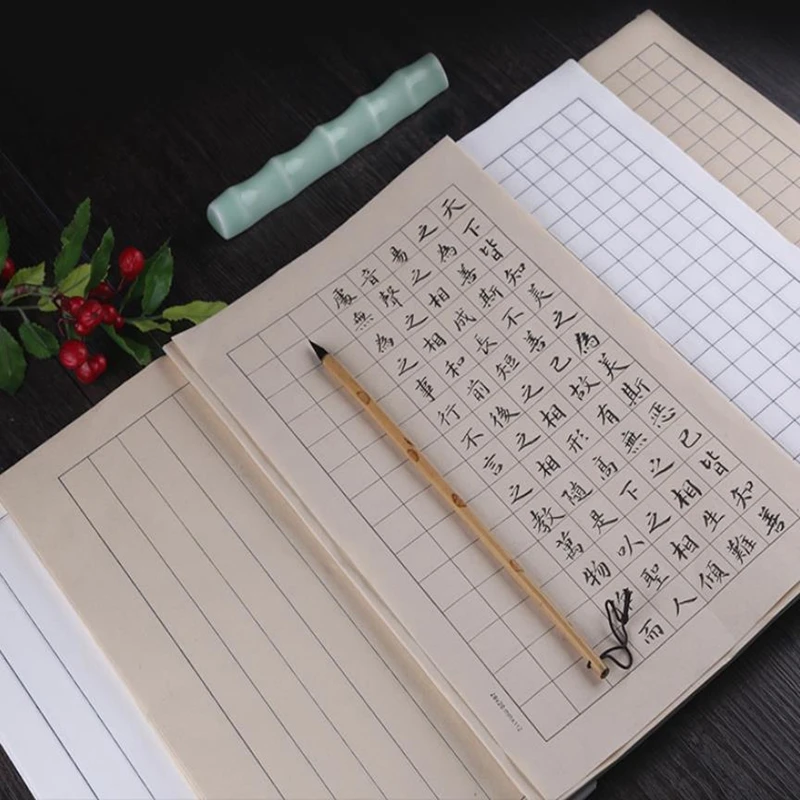 天下皆知美之為美斯惡已皆知善
之為善斯不善已故有無之相生難
易之相成長短之相形高下之相傾
音聲之相和前後之相隨是以聖人
處無為之事行不言之教萬物而